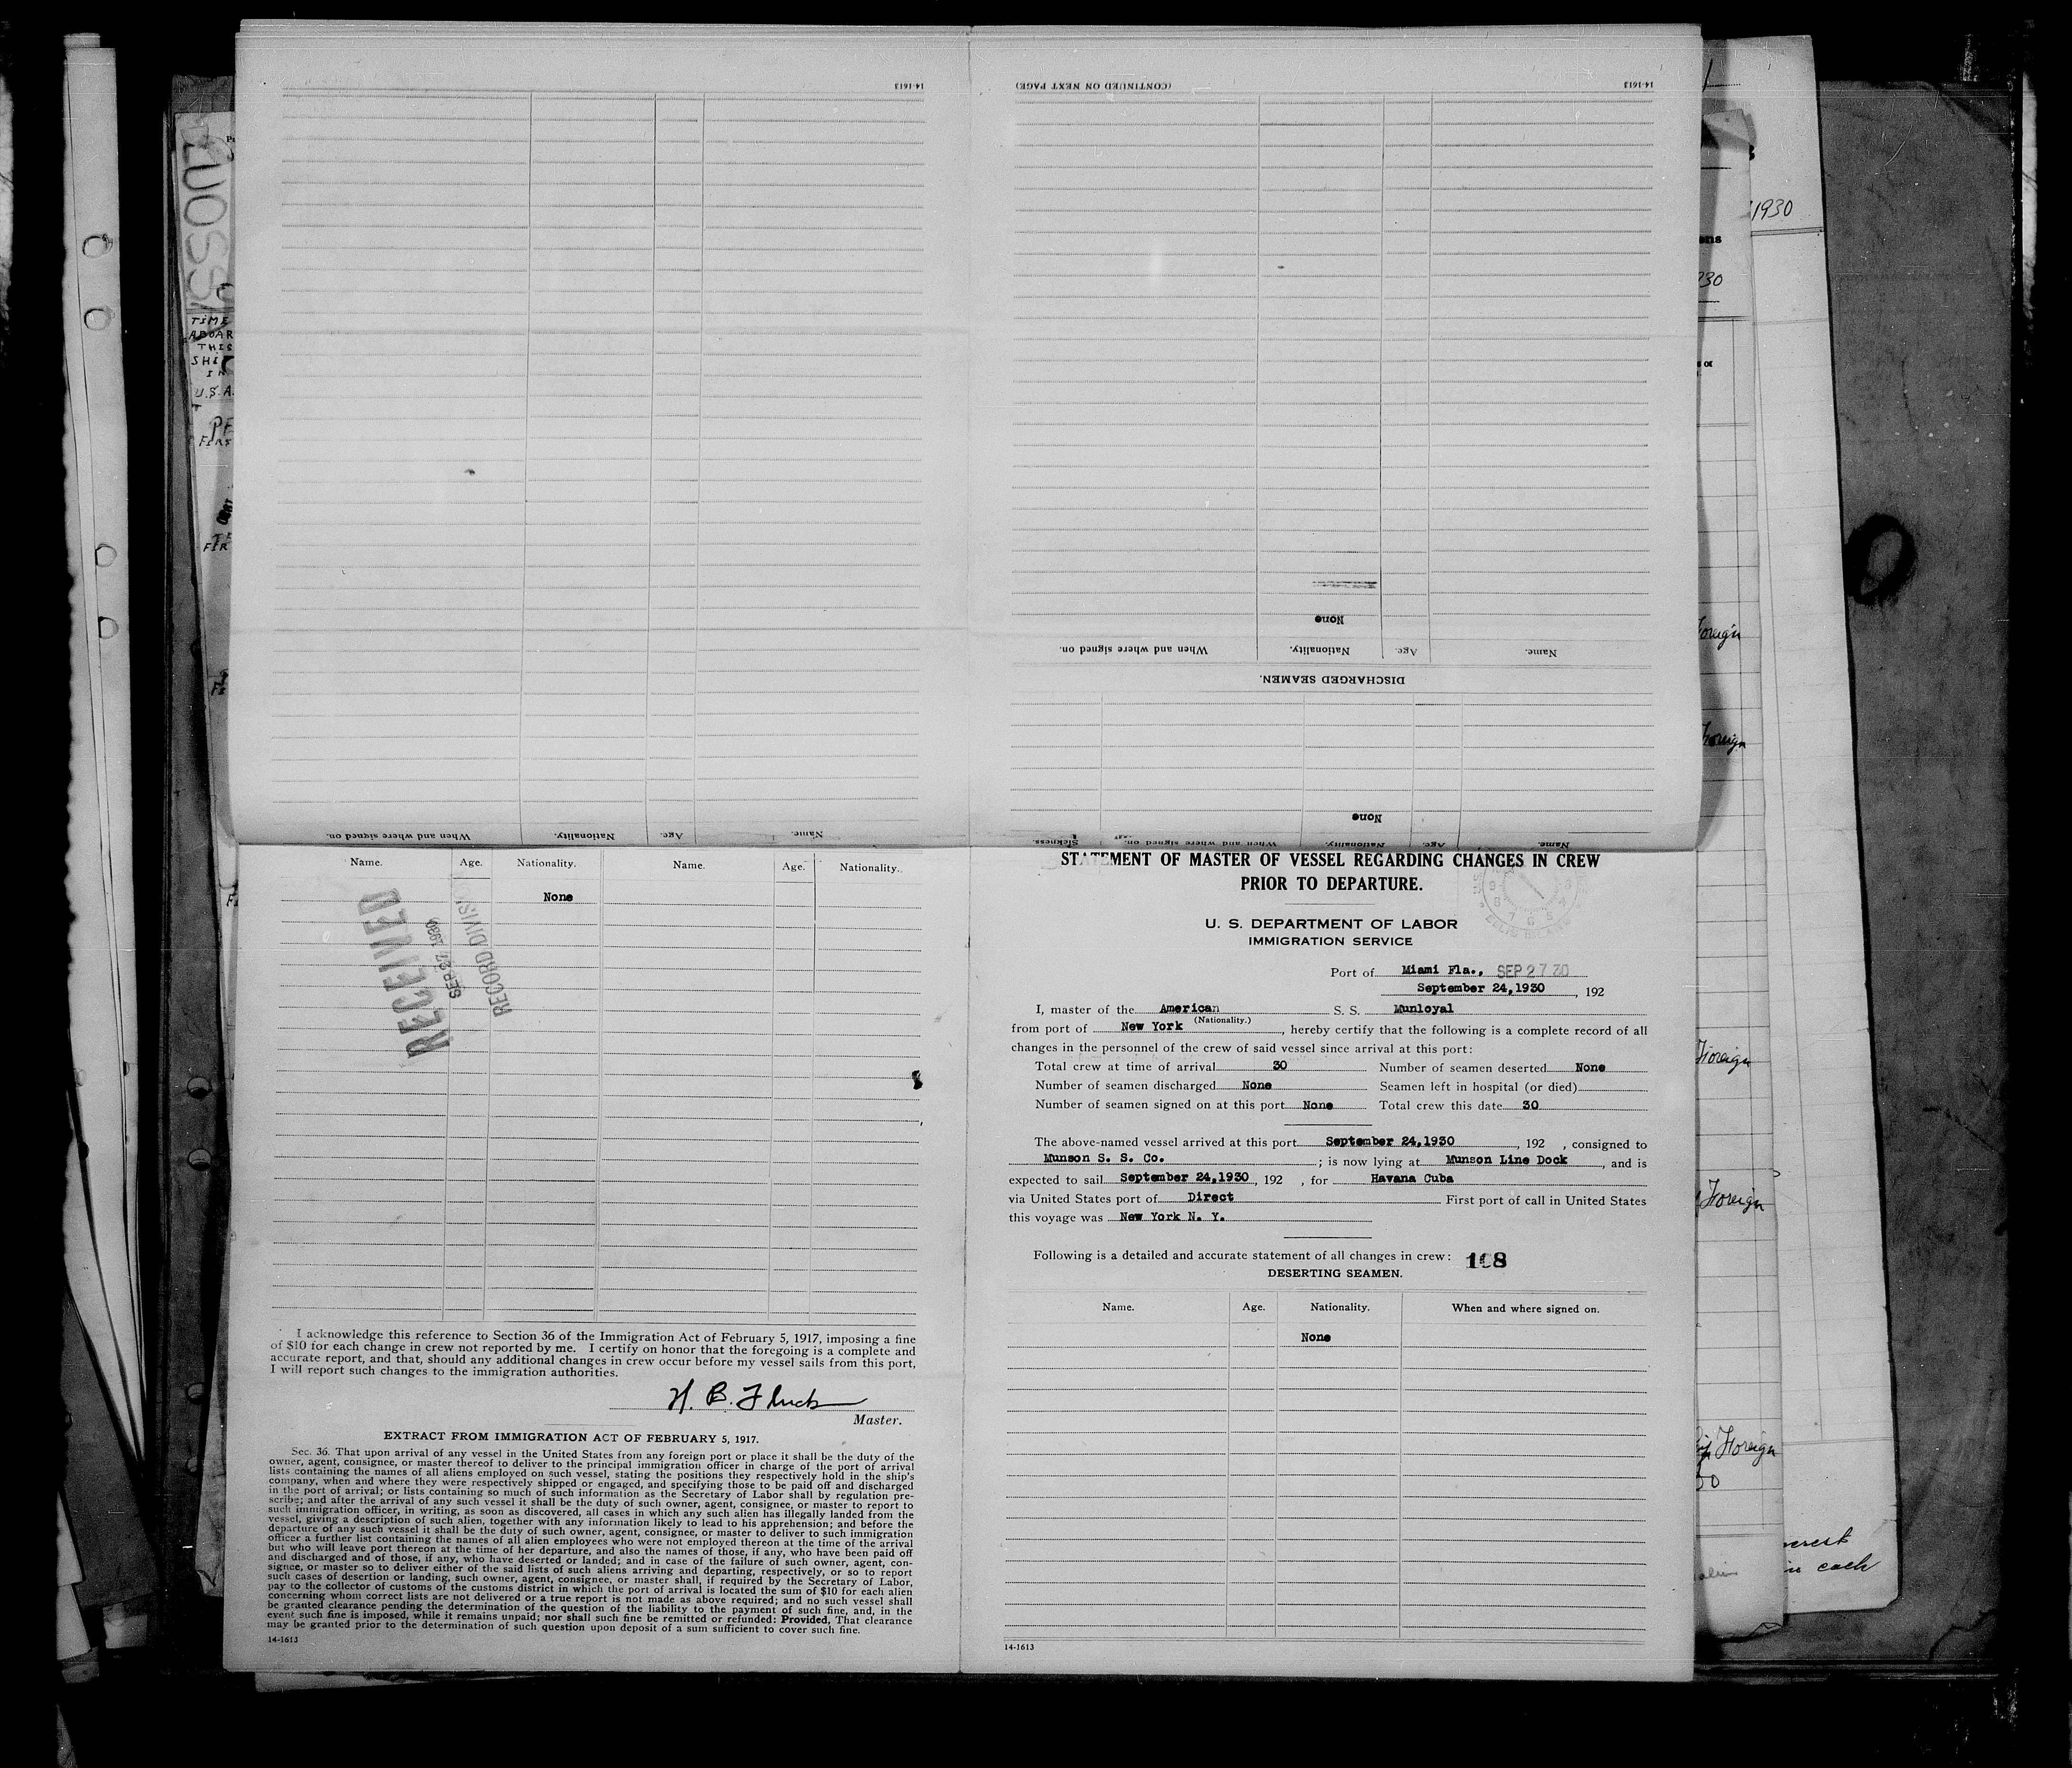 14-1613
When and where signed on.
Nationality.
Age.
Name.
(CONTINUED ON NEXT PAGE)
14-1613
None
When and where signed on.
Nationality.
Age.
Name.
DISCHARGED SEAMEN.
None
Sickness.
When and where signed on.
Nationality.
Age.
Name.
Name.
Age.
Nationality.
Name.
Age.
Nationality.
None
RECEIVED
SEP 27 1930
RECORD DIVIS
I acknowledge this reference to Section 36 of the Immigration Act of February 5, 1917, imposing a fine
of $10 for each change in crew not reported by me. I certify on honor that the foregoing is a complete and
accurate report, and that, should any additional changes in crew occur before my vessel sails from this port,
I will report such changes to the immigration authorities.
Master.
EXTRACT FROM IMMIGRATION ACT OF FEBRUARY 5, 1917.
Sec. 36. That upon arrival of any vessel in the United States from any foreign port or place it shall be the duty of the
owner, agent, consignee, or master thereof to deliver to the principal immigration officer in charge of the port of arrival
lists containing the names of all aliens employed on such vessel, stating the positions they respectively hold in the ship's
company, when and where they were respectively shipped or engaged, and specifying those to be paid off and discharged
in the port of arrival; or lists containing so much of such information as the Secretary of Labor shall by regulation pre-
scribe; and after the arrival of any such vessel it shall be the duty of such owner, agent, consignee, or master to report to
such immigration officer, in writing, as soon as discovered, all cases in which any such alien has illegally landed from the
vessel, giving a description of such alien, together with any information likely to lead to his apprehension; and before the
departure of any such vessel it shall be the duty of such owner, agent, consignee, or master to deliver to such immigration
officer a further list containing the names of all alien employees who were not employed thereon at the time of the arrival
but who will leave port thereon at the time of her departure, and also the names of those, if any, who have been paid off
and discharged and of those, if any, who have deserted or landed; and in case of the failure of such owner, agent, con-
signee, or master so to deliver either of the said lists of such aliens arriving and departing, respectively, or so to report
such cases of desertion or landing, such owner, agent, consignee, or master shall, if required by the Secretary of Labor,
pay to the collector of customs of the customs district in which the port of arrival is located the sum of $10 for each alien
concerning whom correct lists are not delivered or a true report is not made as above required; and no such vessel shall
be granted clearance pending the determination of the question of the liability to the payment of such fine, and, in the
event such fine is imposed, while it remains unpaid; nor shall such fine be remitted or refunded: Provided, That clearance
may be granted prior to the determination of such question upon deposit of a sum sufficient to cover such fine.
14-1613
STATEMENT OF MASTER OF VESSEL REGARDING CHANGES IN CREW
PRIOR TO DEPARTURE.
U. S. DEPARTMENT OF LABOR
IMMIGRATION SERVICE
Port of Miami Fla., SEP 27 30
September 24,1930, 192
I, master of the American S. S. Munloyal
(Nationality.)
from port of New York, hereby certify that the following is a complete record of all
changes in the personnel of the crew of said vessel since arrival at this port:
Total crew at time of arrival 30 Number of seamen deserted None
Number of seamen discharged None Seamen left in hospital (or died)
Number of seamen signed on at this port None Total crew this date 30
The above-named vessel arrived at this port September 24,1930, 192 , consigned to
Munson S. S. Co. ; is now lying at Munson Line Dock, and is
expected to sail September 24,1930, 192 , for Havana Cuba
via United States port of Direct First port of call in United States
this voyage was New York N. Y.
Following is a detailed and accurate statement of all changes in crew:
DESERTING SEAMEN.
Name.
Age.
Nationality.
When and where signed on.
None
14-1613
TIME
ABOAR
THIS
SHI
IN
U.S.A.
1930
Foreign
Foreign
Foreign
in each